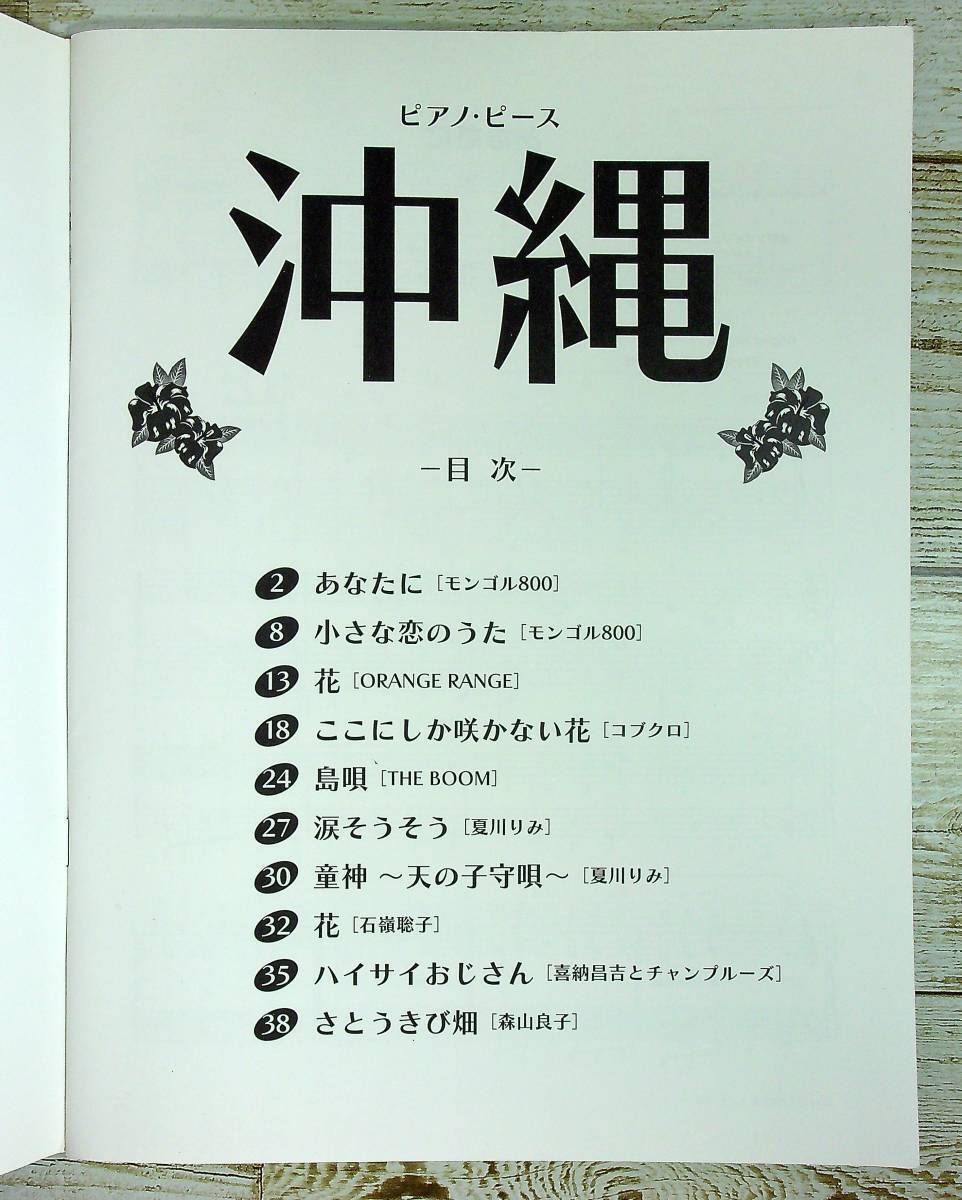 ピアノ・ピース
沖縄
－目 次－
2 あなたに［モンゴル800］
8 小さな恋のうた［モンゴル800］
13 花［ORANGE RANGE］
18 ここにしか咲かない花［コブクロ］
24 島唄［THE BOOM］
27 涙そうそう［夏川りみ］
30 童神 ～天の子守唄～［夏川りみ］
32 花［石嶺聡子］
35 ハイサイおじさん［喜納昌吉とチャンプルーズ］
38 さとうきび畑［森山良子］